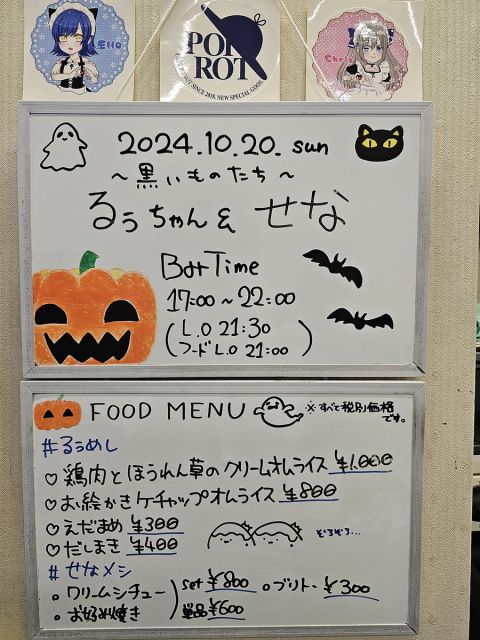 Ello
POP
ROT
SINCE 2018. NEW SPECIAL GOODS
Chris
2024.10.20. sun
～黒いものたち～
るぅちゃん & せな
Bar Time
17:00～22:00
(L.O 21:30
フードL.O 21:00)
FOOD MENU
※すべて税別価格です。
#るぅめし
♡鶏肉とほうれん草のクリームオムライス ¥1,000
♡お絵かきケチャップオムライス ¥800
♡えだまめ ¥300
♡だしまき ¥400
#せなメシ
・クリームシチュー
・お好み焼き
set ¥800
単品 ¥600
・ブリトー ¥300